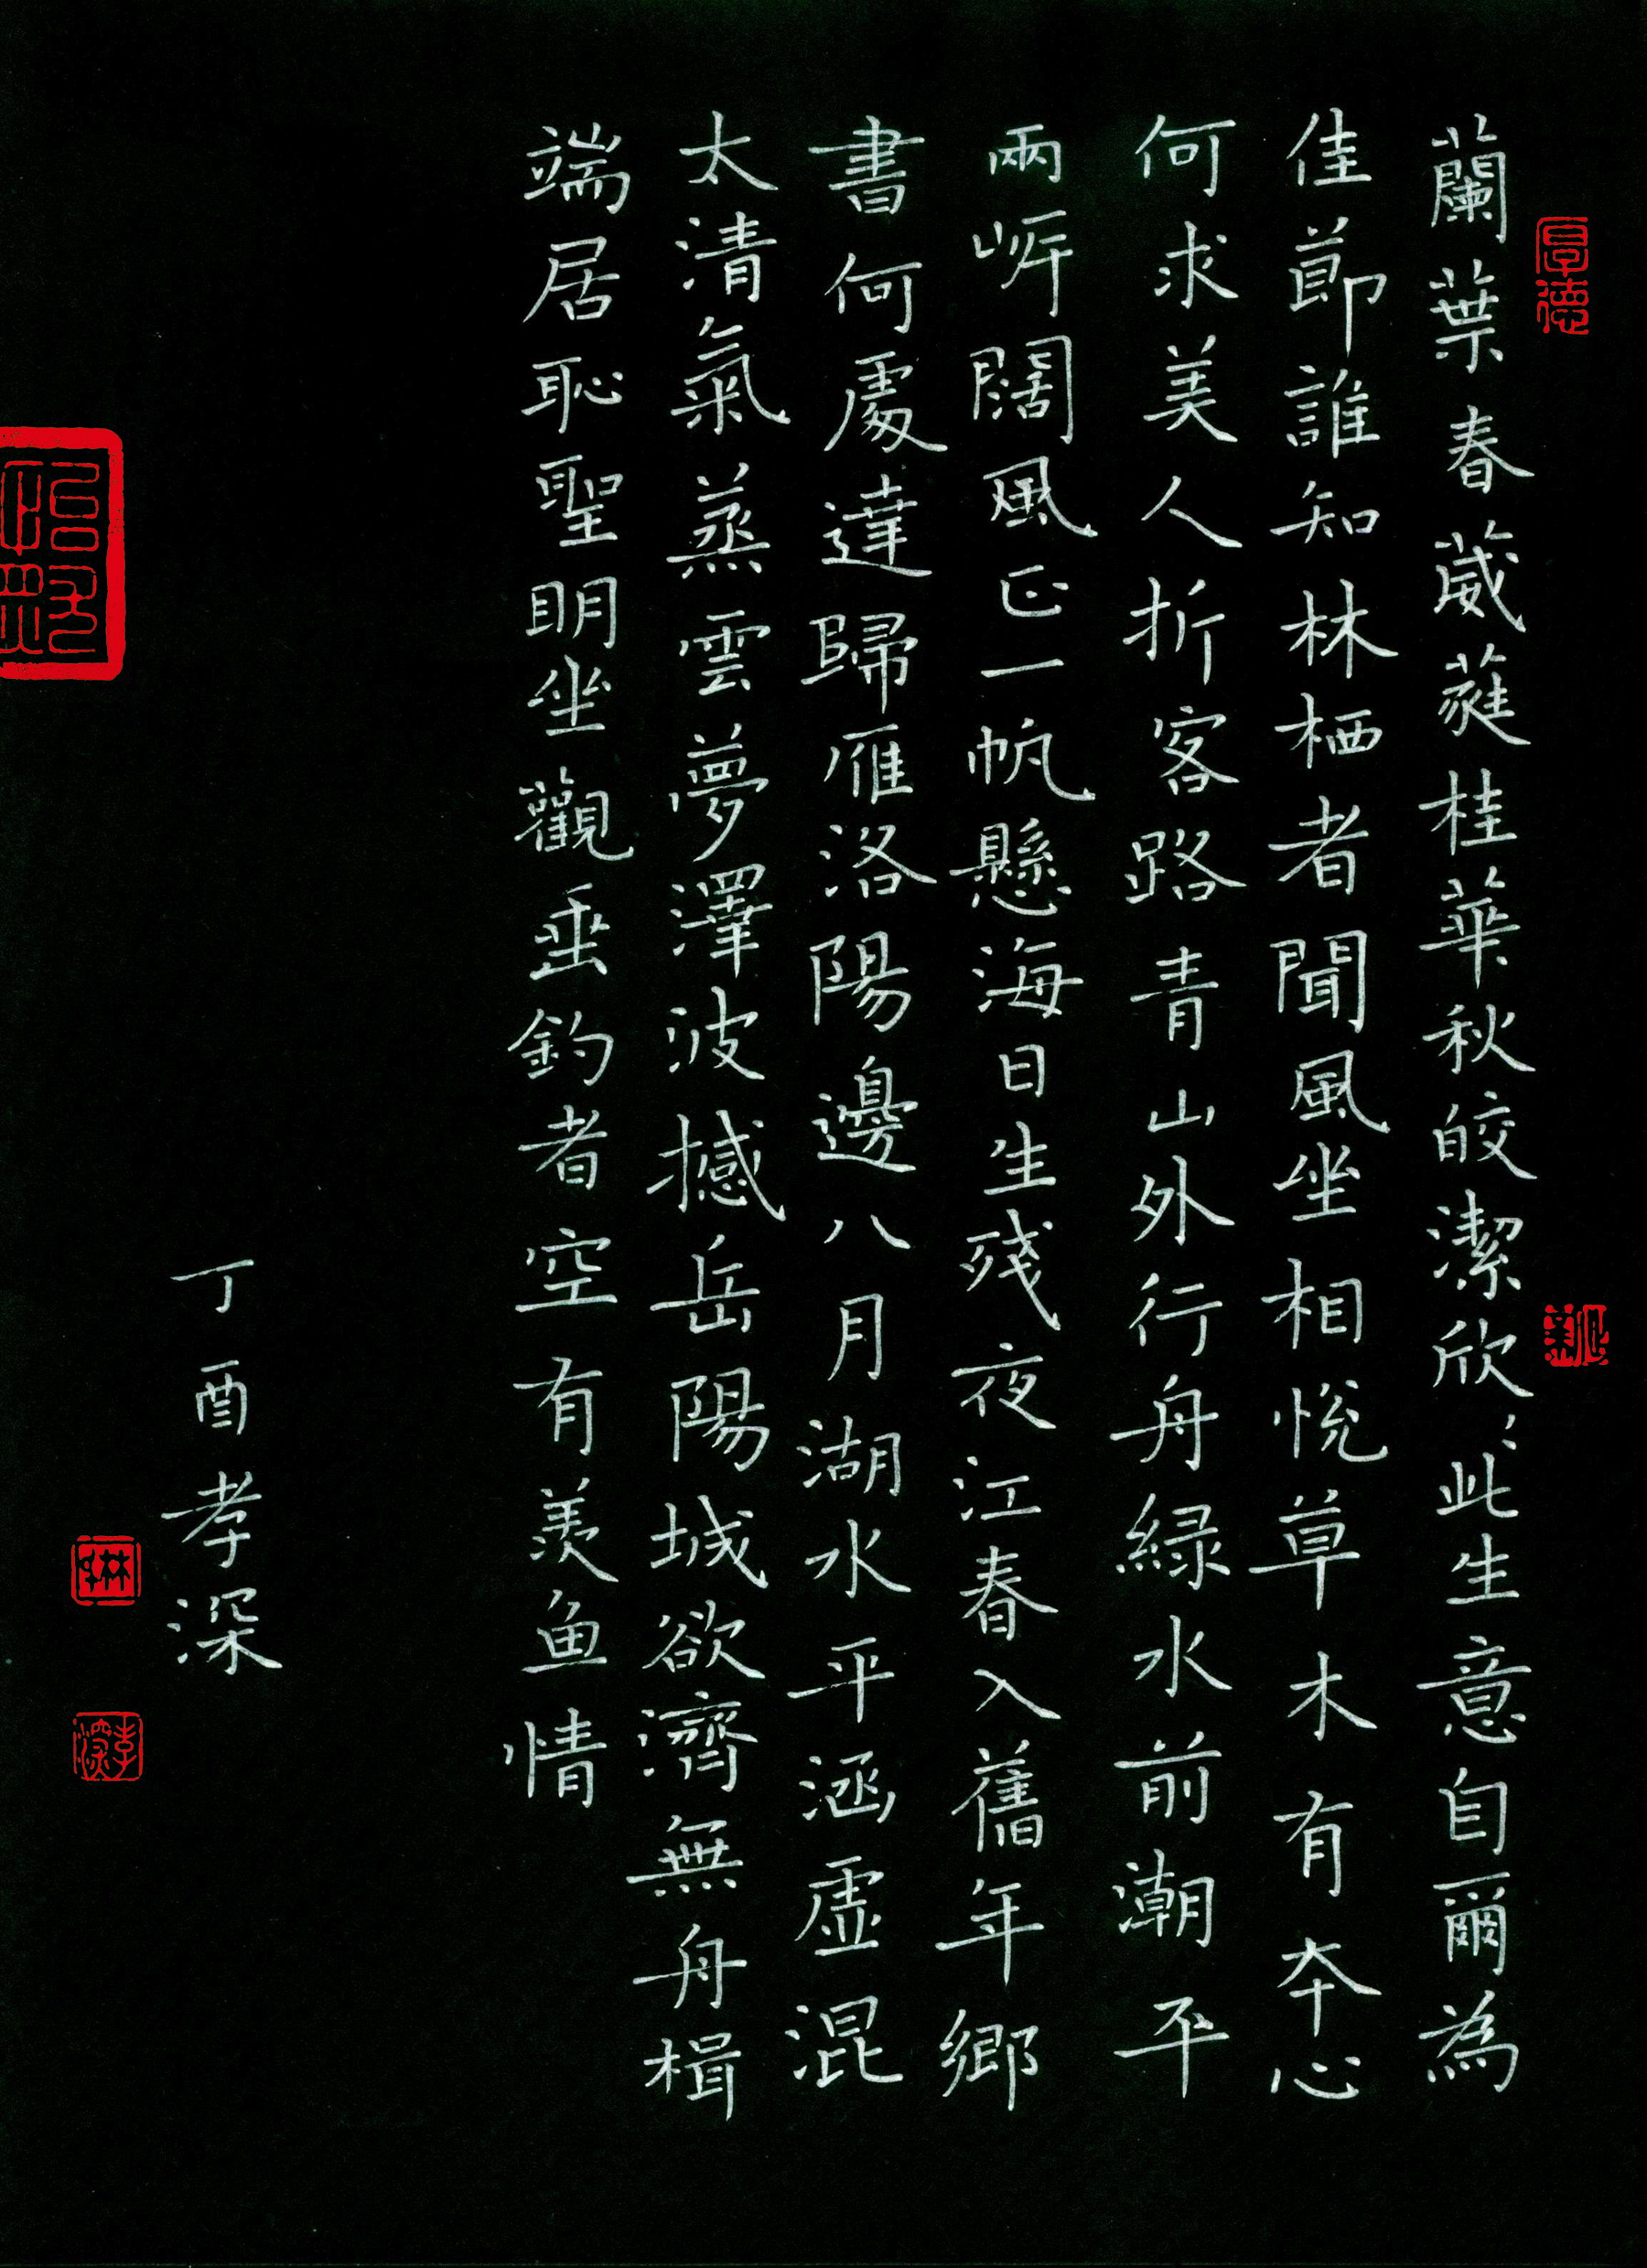 蘭葉春葳蕤桂華秋皎潔欣〻此生意自爾為
佳節誰知林栖者聞風坐相悅草木有本心
何求美人折客路青山外行舟綠水前潮平
兩岸闊風正一帆懸海日生殘夜江春入舊年鄉
書何處達歸雁洛陽邊八月湖水平涵虛混
太清氣蒸雲夢澤波撼岳陽城欲濟無舟楫
端居恥聖明坐觀垂釣者空有羨鱼情
丁酉孝深
厚德
孝深